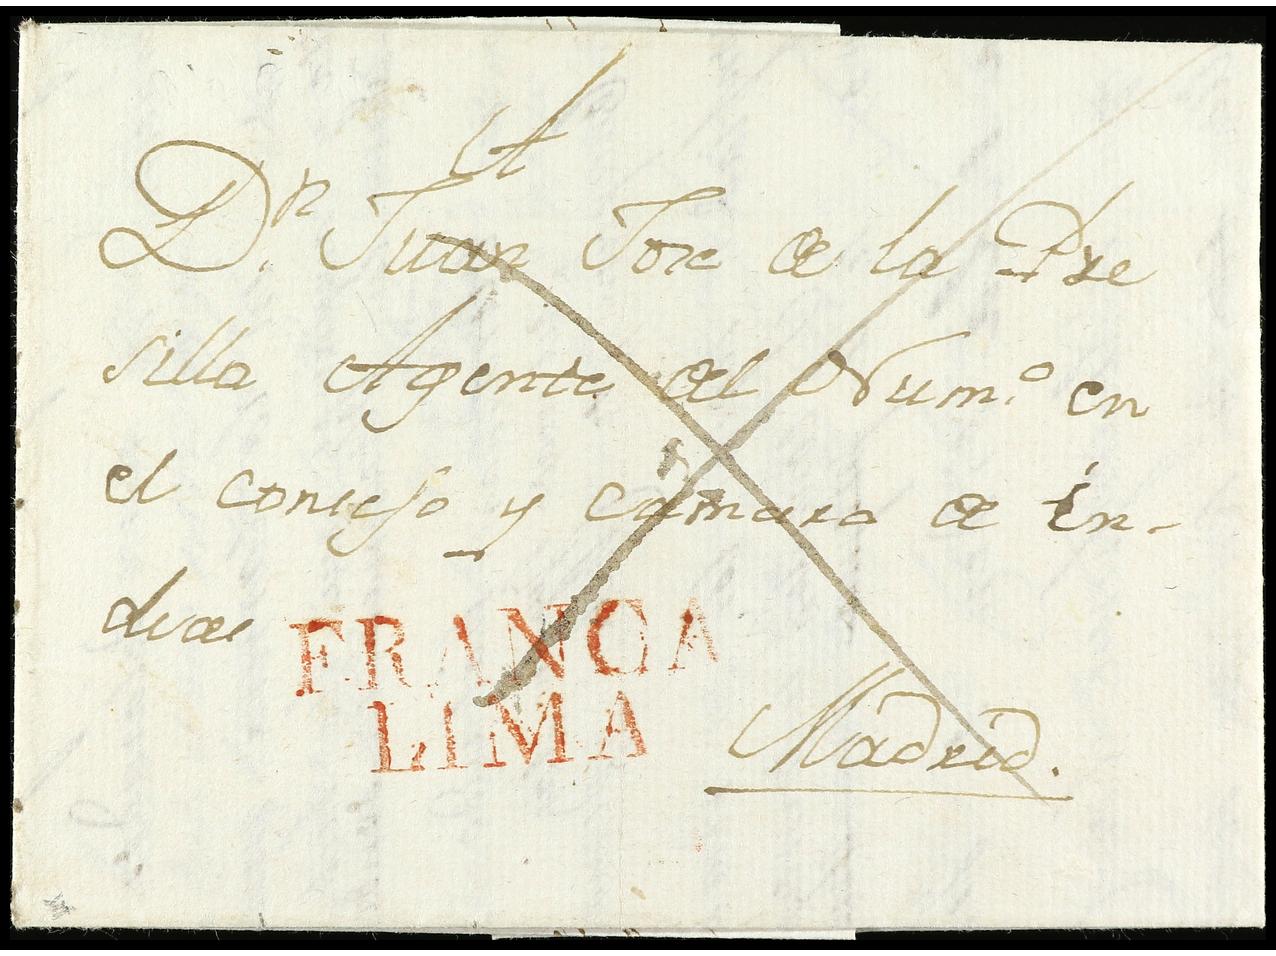 A
Dn. Juan Jose de la Pre
silla Agente del Num.o en
el consejo y camara de in-
dias
FRANCA
LIMA
Madrid.